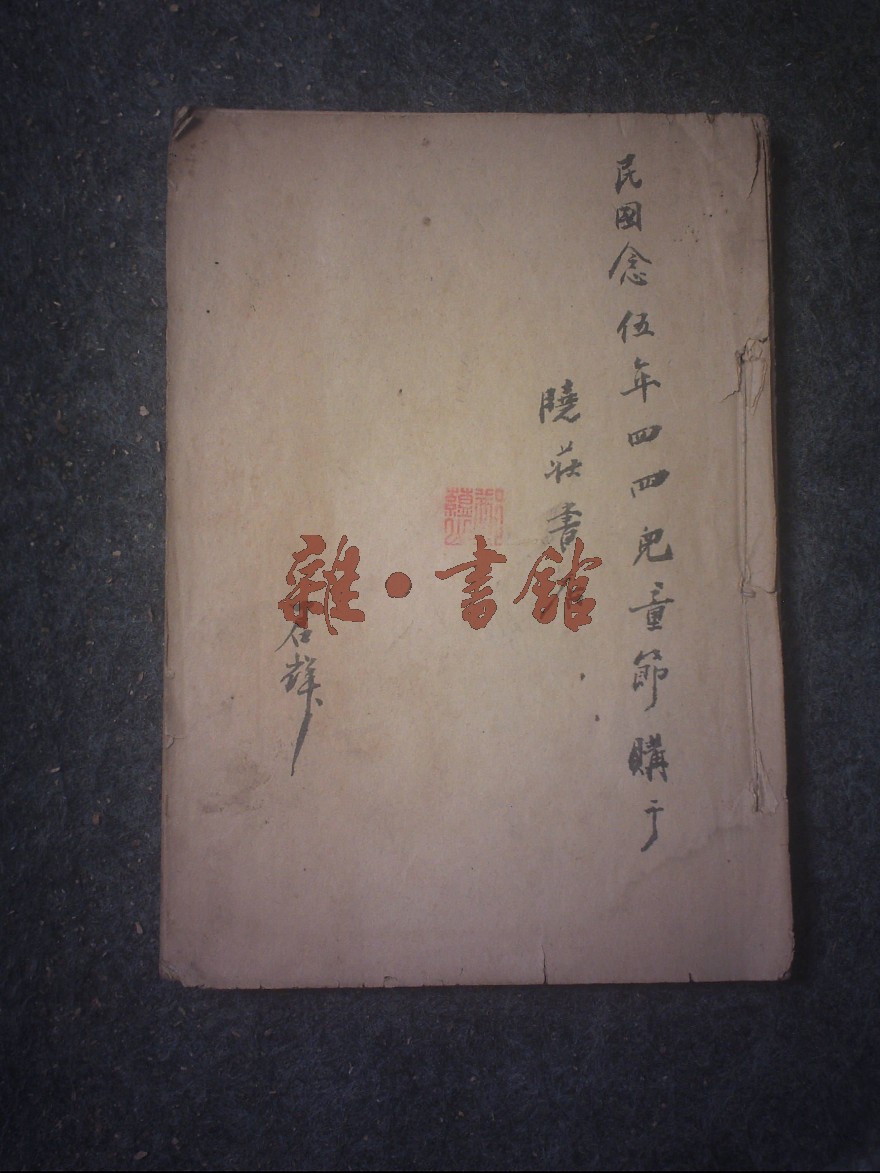 民國念伍年四四兒童節購于
曉莊書
石辉
雜·書館